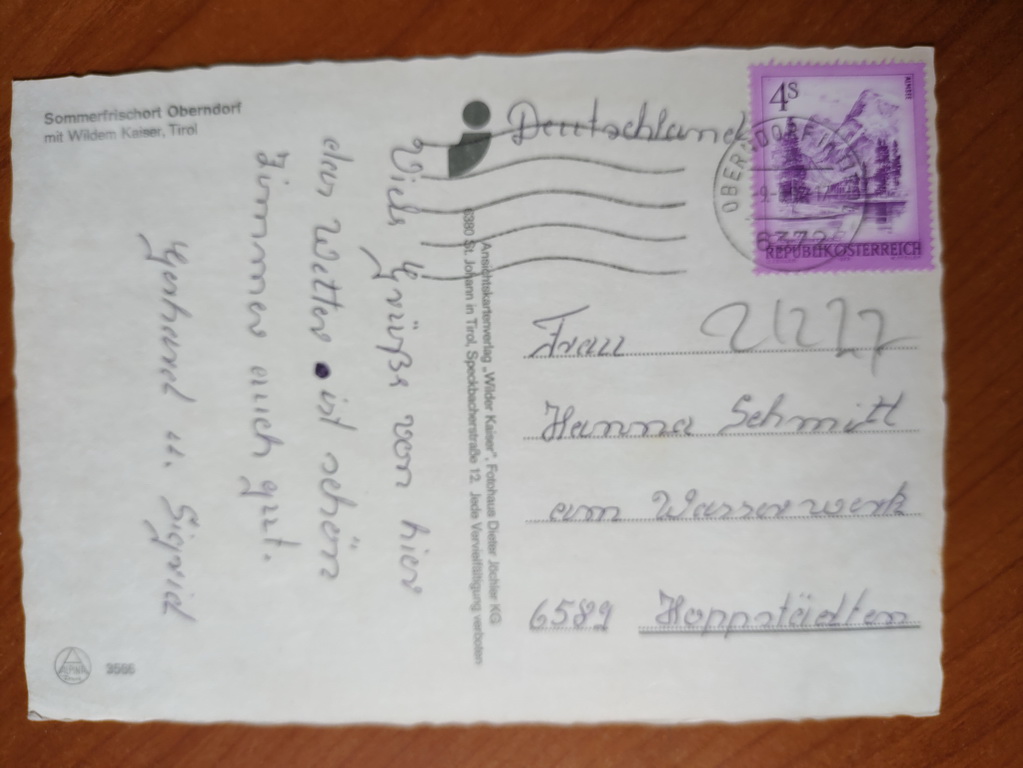 Sommerfrischort Oberndorf
mit Wildem Kaiser, Tirol
Viele Grüße von hier
das Wetter ist schön
Zimmer auch gut.
Gerhard u. Sigrid
ALPINA
3566
Ansichtskartenverlag „Wilder Kaiser", Fotohaus Dieter Jöchler KG
6380 St. Johann in Tirol, Speckbacherstraße 12. Jede Vervielfältigung verboten
Deutschland
4S
ALMSEE
OBERNDORF IN TIROL
6372
REPUBLIK ÖSTERREICH
Frau
Hanna Schmitt
am Wasserwerk
6589 Hoppstädten